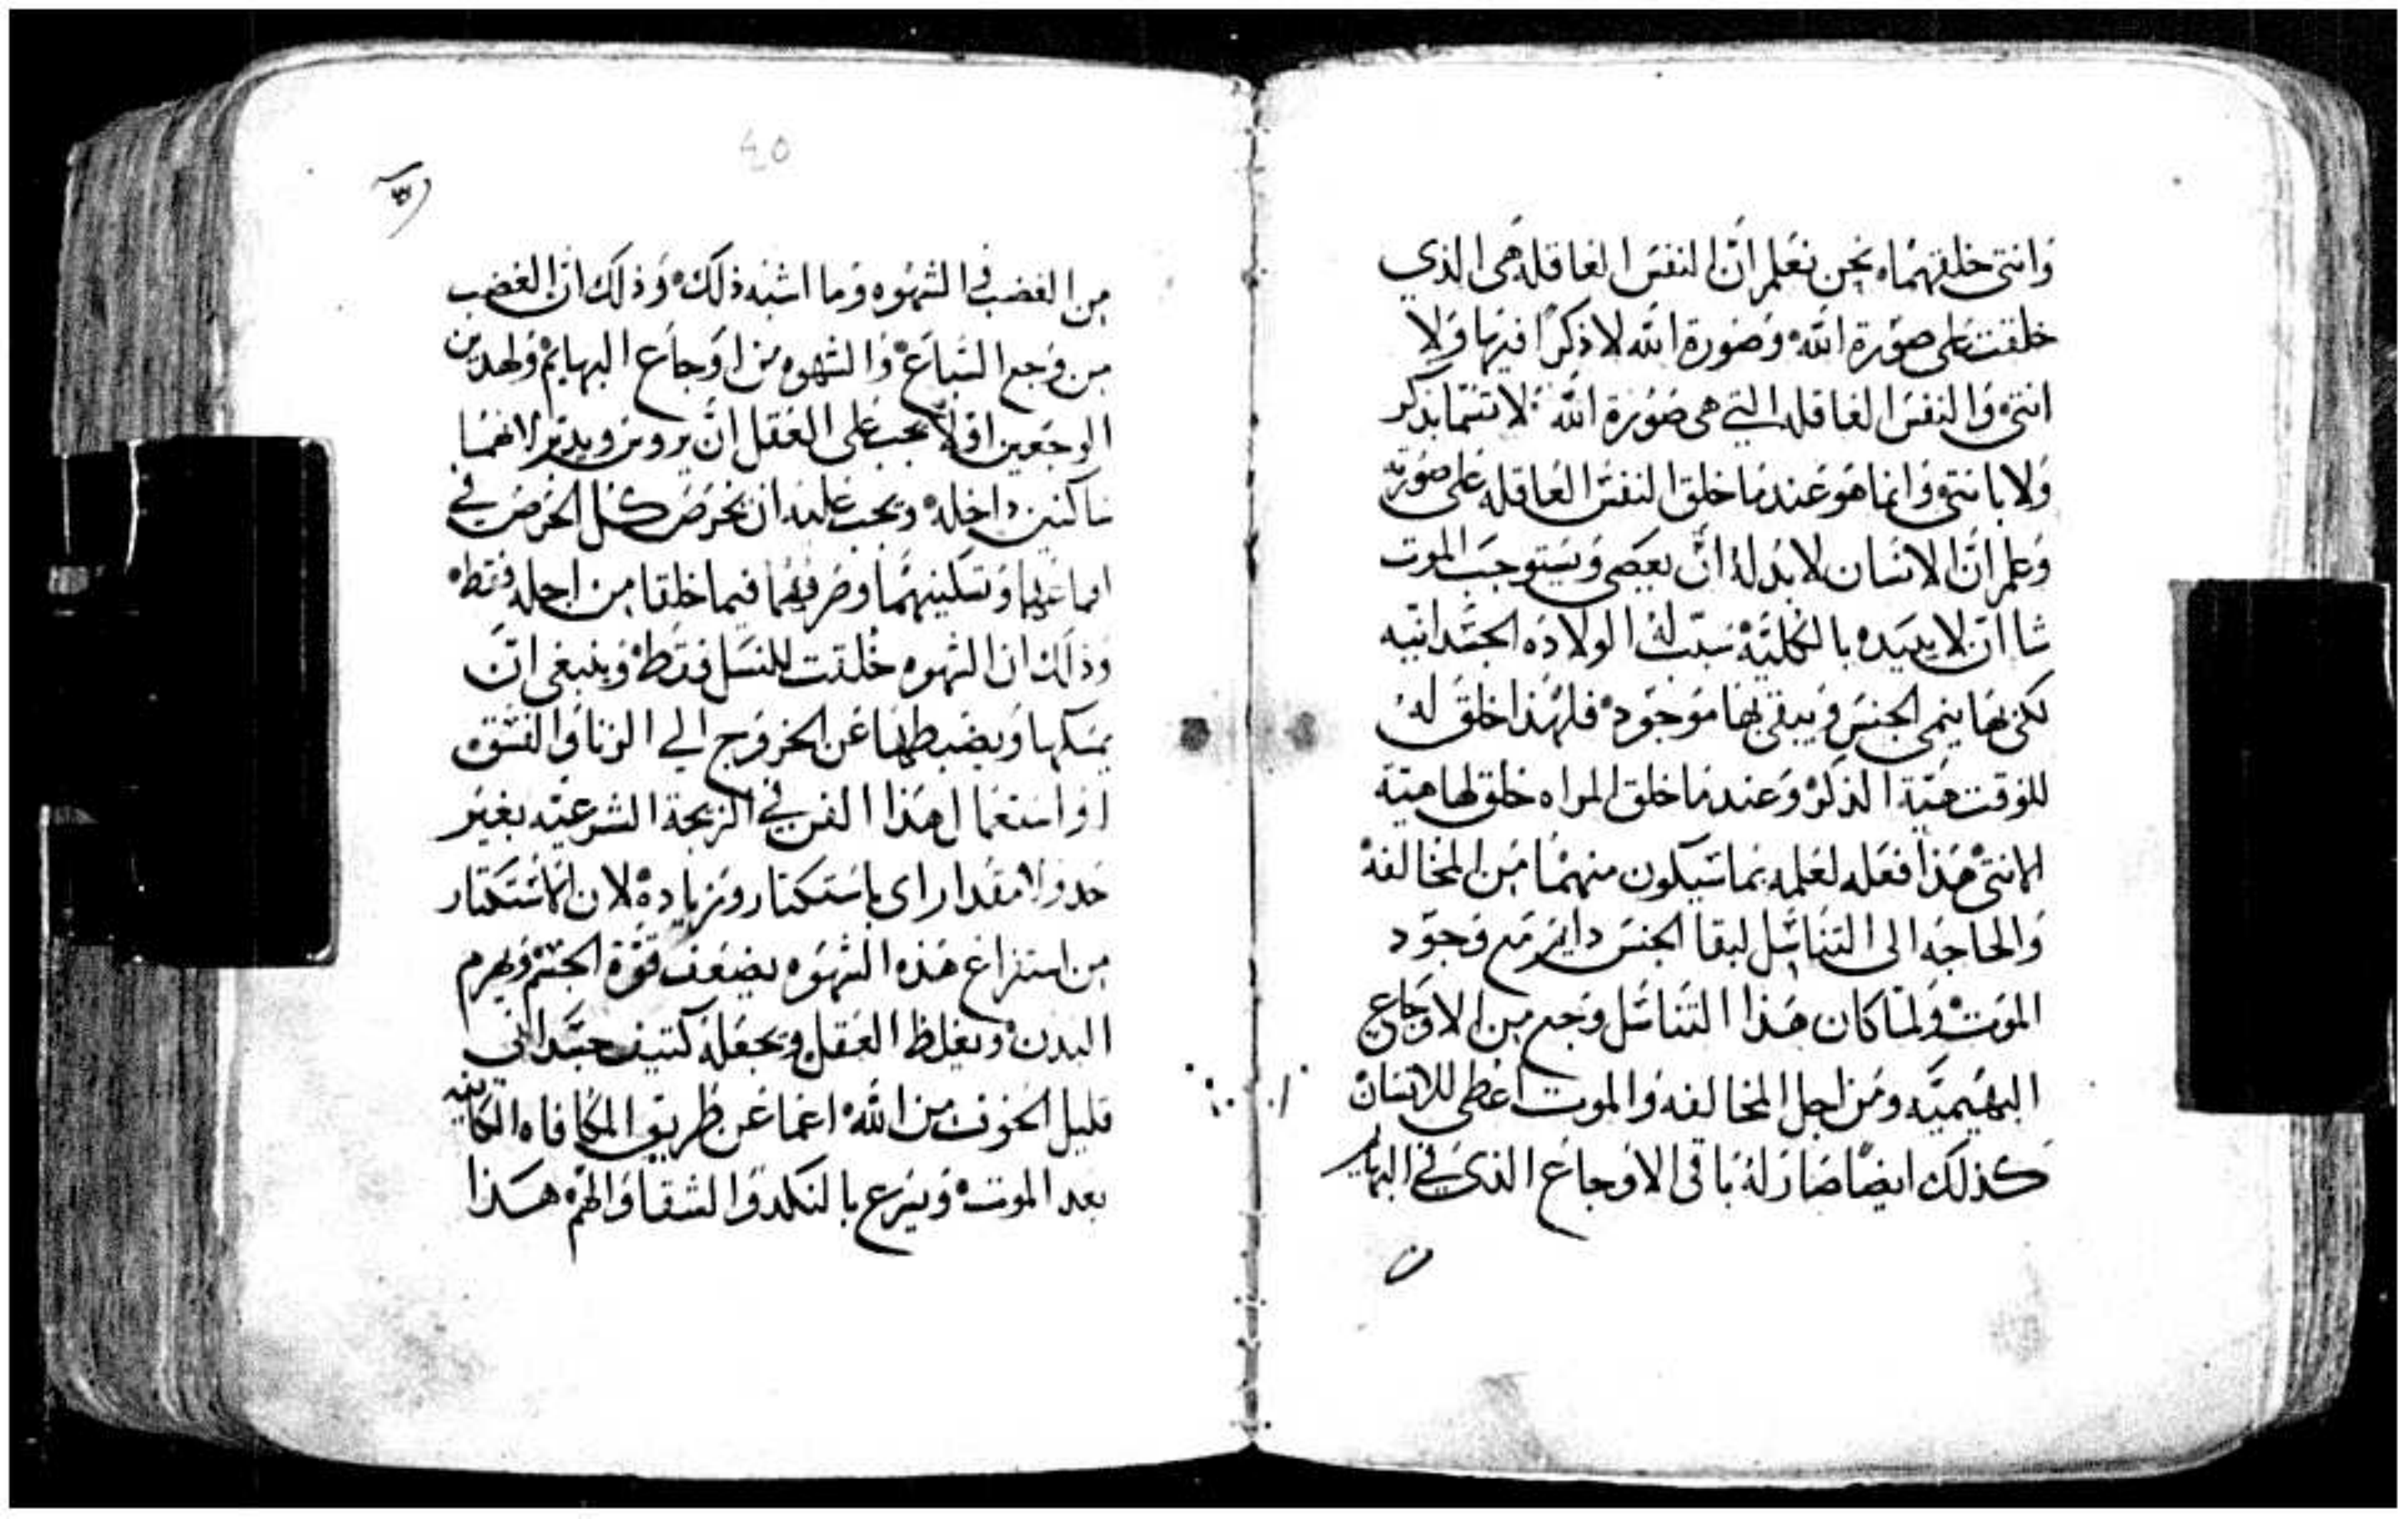 وَانتى خلقهما ه نحن نعلم انّ النفس العاقله هى الذي
خلقت على صورة الله ه وصورة الله لا ذكرًا فيها ولا
انتى ه والنفس العاقله التي هى صورة الله لا تتسما بذكر
ولا بانتى وانما هو عند ما خلق النفس العاقله على صورته
وعلم انّ الانسان لا بد له انّ يعصى ويستوجب الموت
شا ان لا يبيده بالكليّة سبّب له الولاده الجسدانيه
لكى بها ينمى الجنس ويبقى بها موجود ه فلهذا خلق له
للوقت هيّة الذكر وعند ما خلق المراه خلق لها هيّة
الانتى هذا فعله لعلمه بما سيكون منهما من المخالفه
والحاجه الى التناسل لبقا الجنس دايم مع وجود
الموت ه ولما كان هذا التناسل وجع من الاوجاع
البهيميّه ومن اجل المخالفه والموت اعطى للانسان
كذلك ايضًا صار له باقى الاوجاع الذى في البهايم
40
من الغضب في الشهوه وما اشبه ذلك ه وذلك انّ الغضب
من وجع السباع ه والشهوه من اوجاع البهايم ولهدين
الوجعين اولاً يجب على العقل انّ يروض ويدبر لانهما
ساكنين داخله ه ويجب عليه ان يحرص كل الحرص في
وتسكينهما وصرفهما فيما خلقا من اجله فقط ه
وذلك ان الشهوه خُلقت للنسل فقط ه وينبغى انّ
يمسكها ويضبطها عن الخروج الي الزنا والفسق
او استعمال هذا الفن في الزيجة الشرعيّه بغير
حد ولا مقدار اى باستكتار وزياده ه لان الاستكتار
من استفراغ هذه الشهوه يضعف قوّة الجسم ويهرم
البدن ه ويغلظ العقل ويجعله كتيف جسدانى
قليل الخوف من الله ه اعما عن طريق المكافاه الكاينه
بعد الموت ه ويسرع بالنكد والشقا والهم هذا